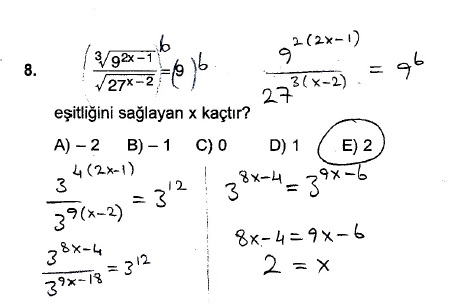 8. (∛(9^(2x-1)) / √(27^(x-2)))^6 = (9)^6
eşitliğini sağlayan x kaçtır?
A) – 2 B) – 1 C) 0 D) 1 E) 2
9^(2(2x-1)) / 27^(3(x-2)) = 9^6
3^(4(2x-1)) / 3^(9(x-2)) = 3^12
3^(8x-4) / 3^(9x-18) = 3^12
3^(8x-4) = 3^(9x-6)
8x-4 = 9x-6
2 = x